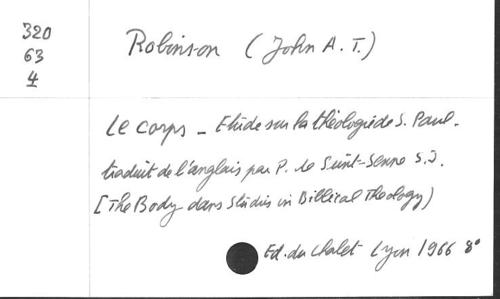 320
63
4
Robinson (John A. T.)
Le corps - Etude sur la théologie de S. Paul.
traduit de l'anglais par P. de Saint-Seine S.J.
[The Body dans Studies in Biblical Theology)
Ed. du Chalet Lyon 1966 8°